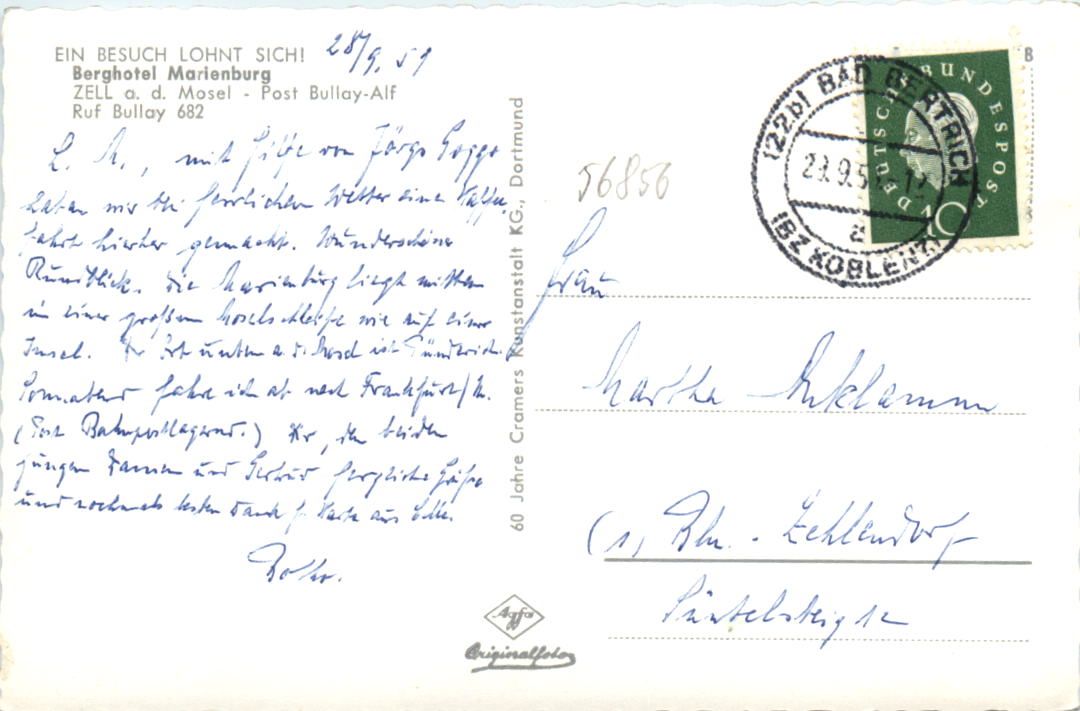 EIN BESUCH LOHNT SICH!
Berghotel Marienburg
ZELL a. d. Mosel - Post Bullay-Alf
Ruf Bullay 682
28/9. 59
L. M., mit Hilfe von Jörgs
haben wir bei herrlichem Wetter eine Kaffee-
fahrt hierher gemacht. Wunderschöner
Rundblick. Die Marienburg liegt mitten
in einer großen Moselschleife wie auf einer
Insel. Der Ort unten a. d. Mosel ist Pünderich.
Sonnabend fahre ich ab nach Frankfurt/M.
(Post Bahnpostlagernd.) Dir, den beiden
jungen Damen und Gertrud herzliche Grüße
und nochmals besten Dank f. Karte aus
Botho.
60 Jahre Cramers Kunstanstalt KG., Dortmund
Agfa
Originalfoto
56856
B
(22b) BAD BERTRICH
29.9.59.-12
a
(BZ KOBLENZ)
DEUTSCHE BUNDESPOST
10
Frau
Martha Anklamm
(1) Bln. - Zehlendorf
Süntelsteig 12